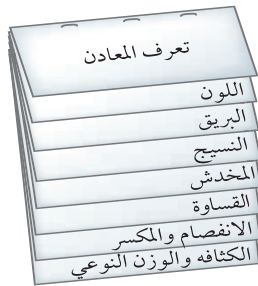 تعرف المعادن
اللون
البريق
النسيج
المخدش
القساوة
الانفصام والمكسر
الكثافه والوزن النوعي